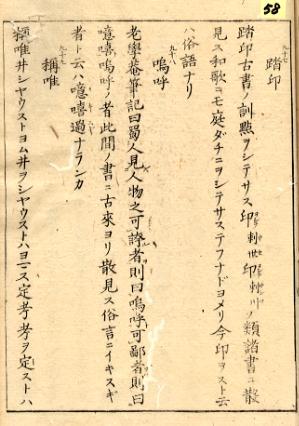 58
九十七
踏印
踏印古書ノ訓點ヲシテサス印
類諸書ニ散
見ス和歌ニモ庭ダチニヲシテサステフナドヨメリ今印ヲスト云
ハ俗語ナリ
九十八
嗚呼
老學菴筆記曰蜀人見人物之可誇者則曰嗚呼可鄙者則曰
噫嘻嗚呼ノ者此間ノ書ニ古來ヨリ散見ス俗言ニイキスギ
者ト云ハ噫嘻過ナランカ
九十九
稱唯
稱唯井シヤウストヨム井ヲシヤウストハヨマス定考考ヲ定ストハ